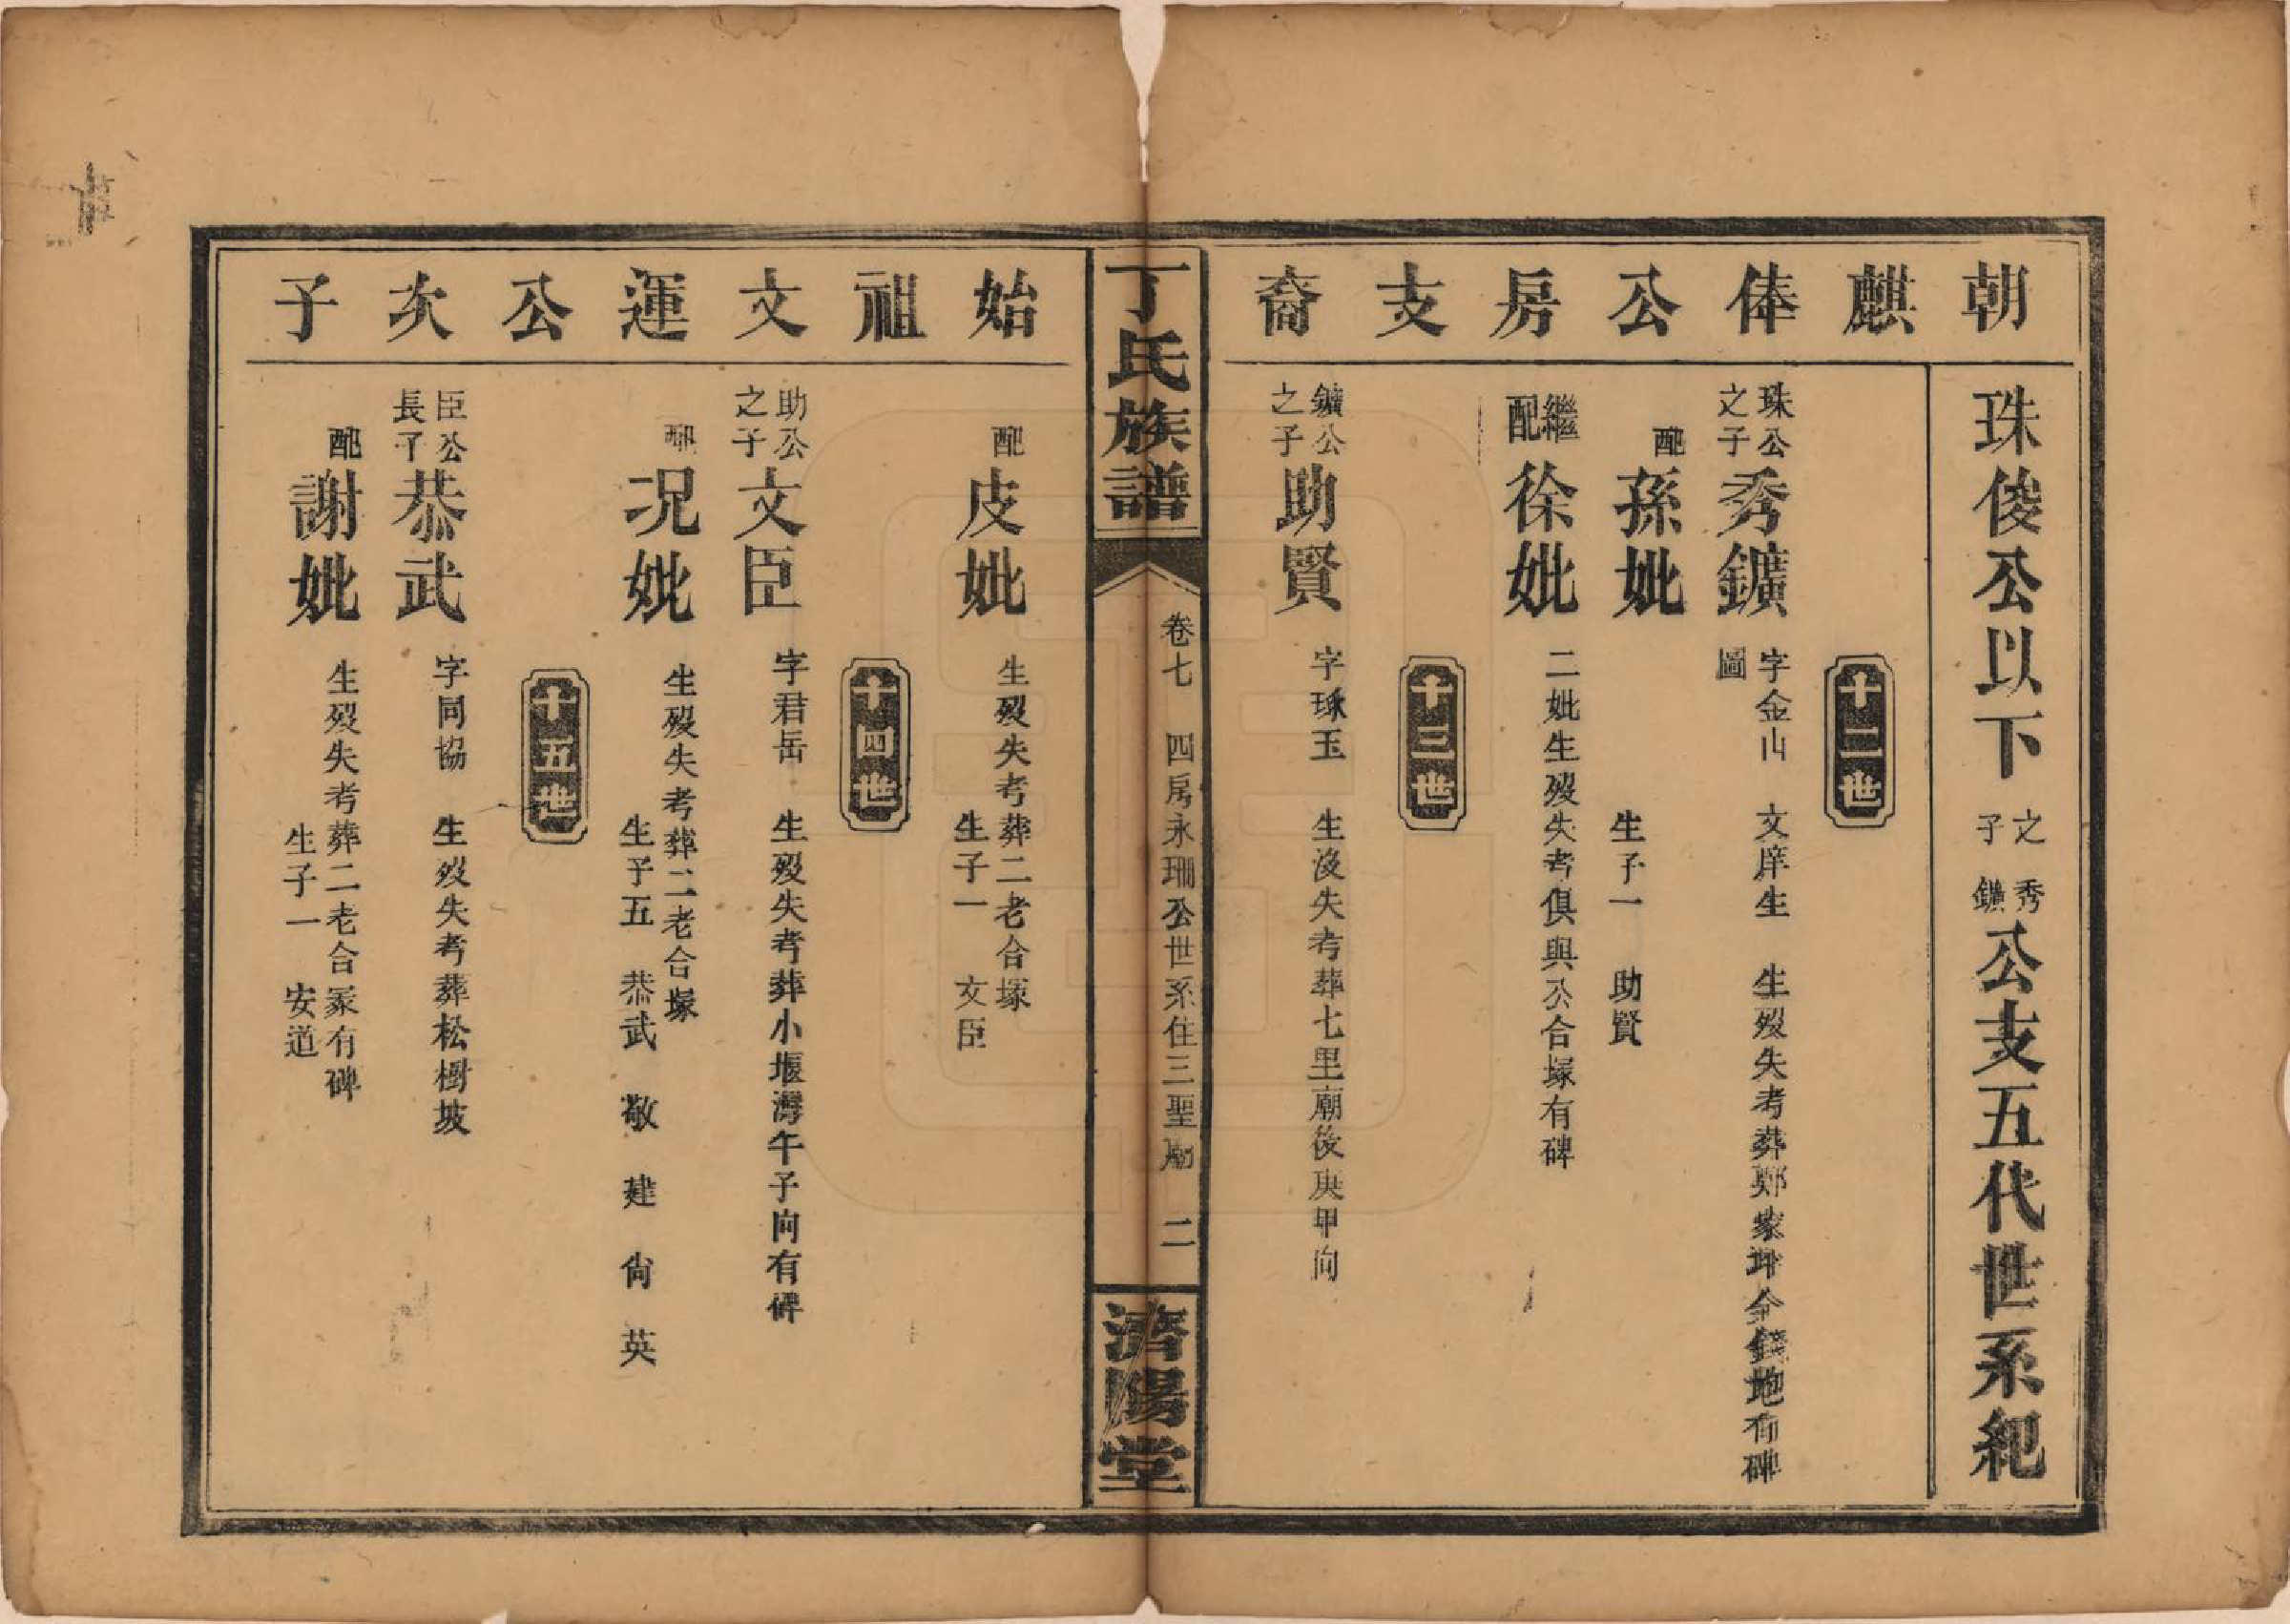 朝麒俸公房支裔
珠俊公以下之子秀鑛公支五代世系紀
十二世
珠公之子秀鑛字金山 文庠生 生歿失考葬鄭家冲金錢地有碑
圖
配孫妣 生子一 助賢
繼配徐妣 二妣生歿失考俱與公合塚有碑
十三世
鑛公之子助賢字琢玉 生沒失考葬七里廟後庚甲向
丁氏族譜
卷七 四房永珊公世系住三聖廟 二
濟陽堂
始祖文運公次子
配皮妣 生歿失考葬二老合塚
生子一 文臣
十四世
助公之子文臣字君岳 生歿失考葬小堰灣午子向有碑
配况妣 生歿失考葬二老合塚
生子五 恭武 敬 建 尙 英
十五世
臣公長子恭武字同協 生歿失考葬松樹坡
配謝妣 生歿失考葬二老合冢有碑
生子一 安道